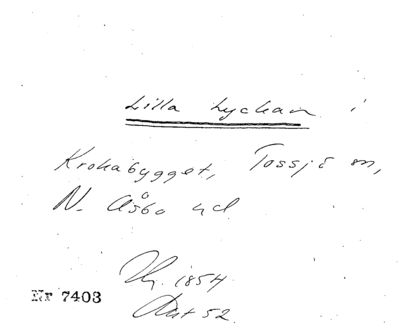 Lilla Lyckan i
Krokabygget, Tossjö sn,
N. Åsbo hd
Hy. 1854
Akt 52
Nr 7403